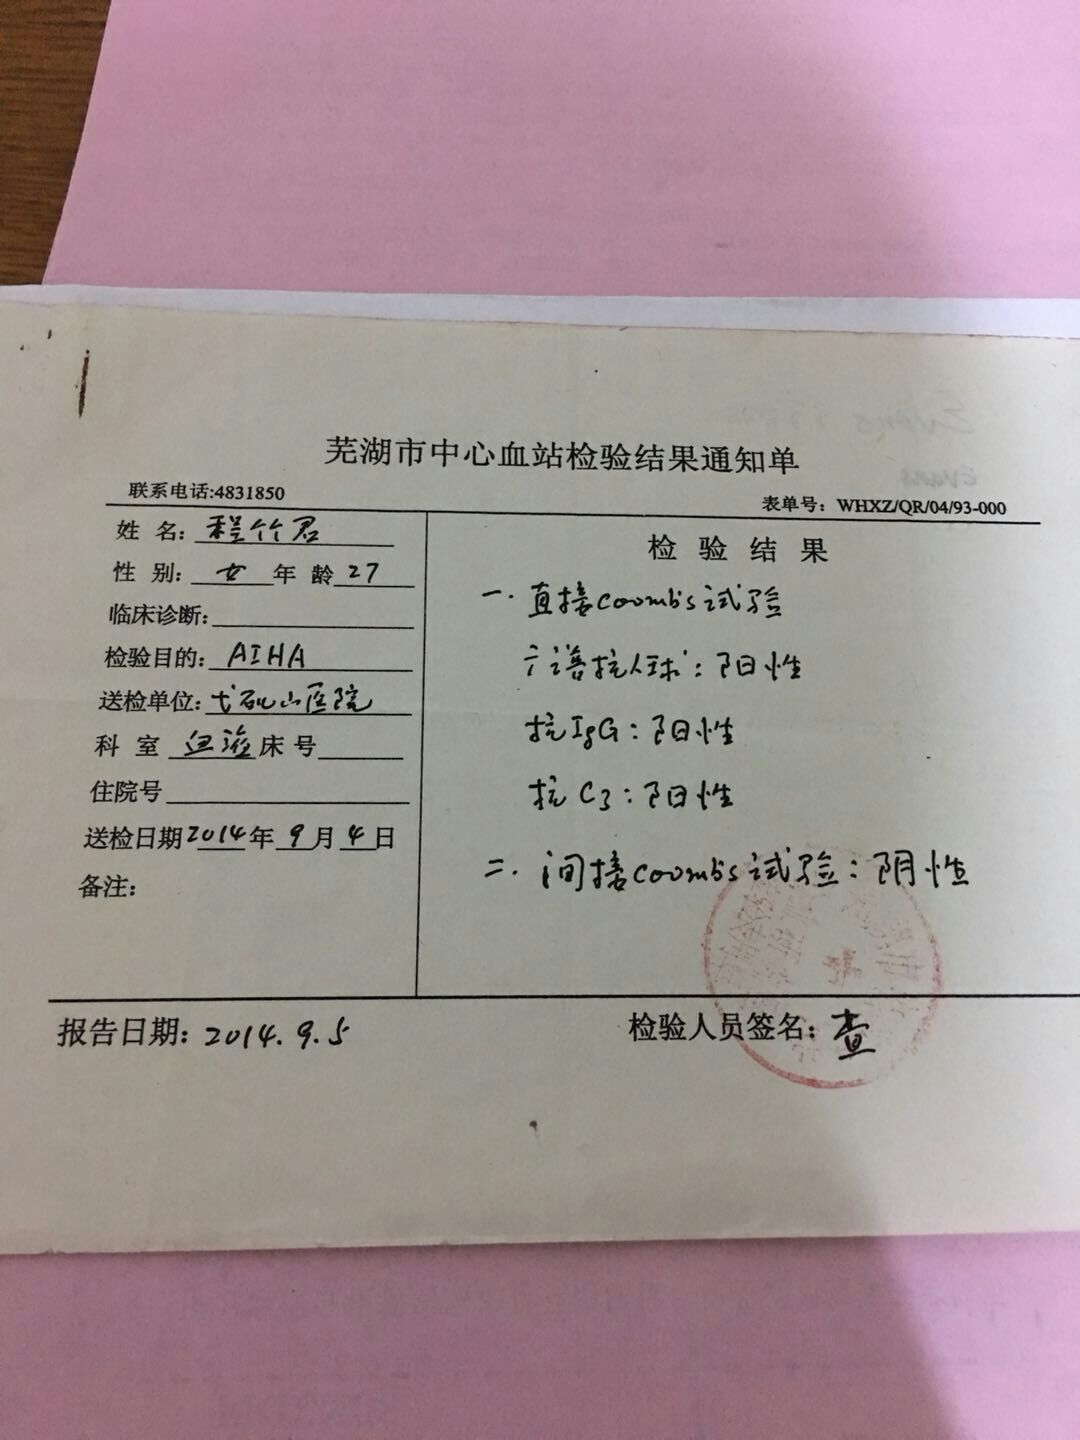 芜湖市中心血站检验结果通知单
联系电话:4831850
表单号：WHXZ/QR/04/93-000
姓 名：程竹君
性 别：女 年 龄 27
临床诊断：
检验目的：AIHA
送检单位：弋矶山医院
科 室 血液 床 号
住院号
送检日期 2014 年 9 月 4 日
备注：
检 验 结 果
一. 直接coombs试验
广谱抗人球：阳性
抗IgG：阳性
抗C3：阳性
二. 间接coombs试验：阴性
报告日期：2014.9.5
检验人员签名：查
Evans